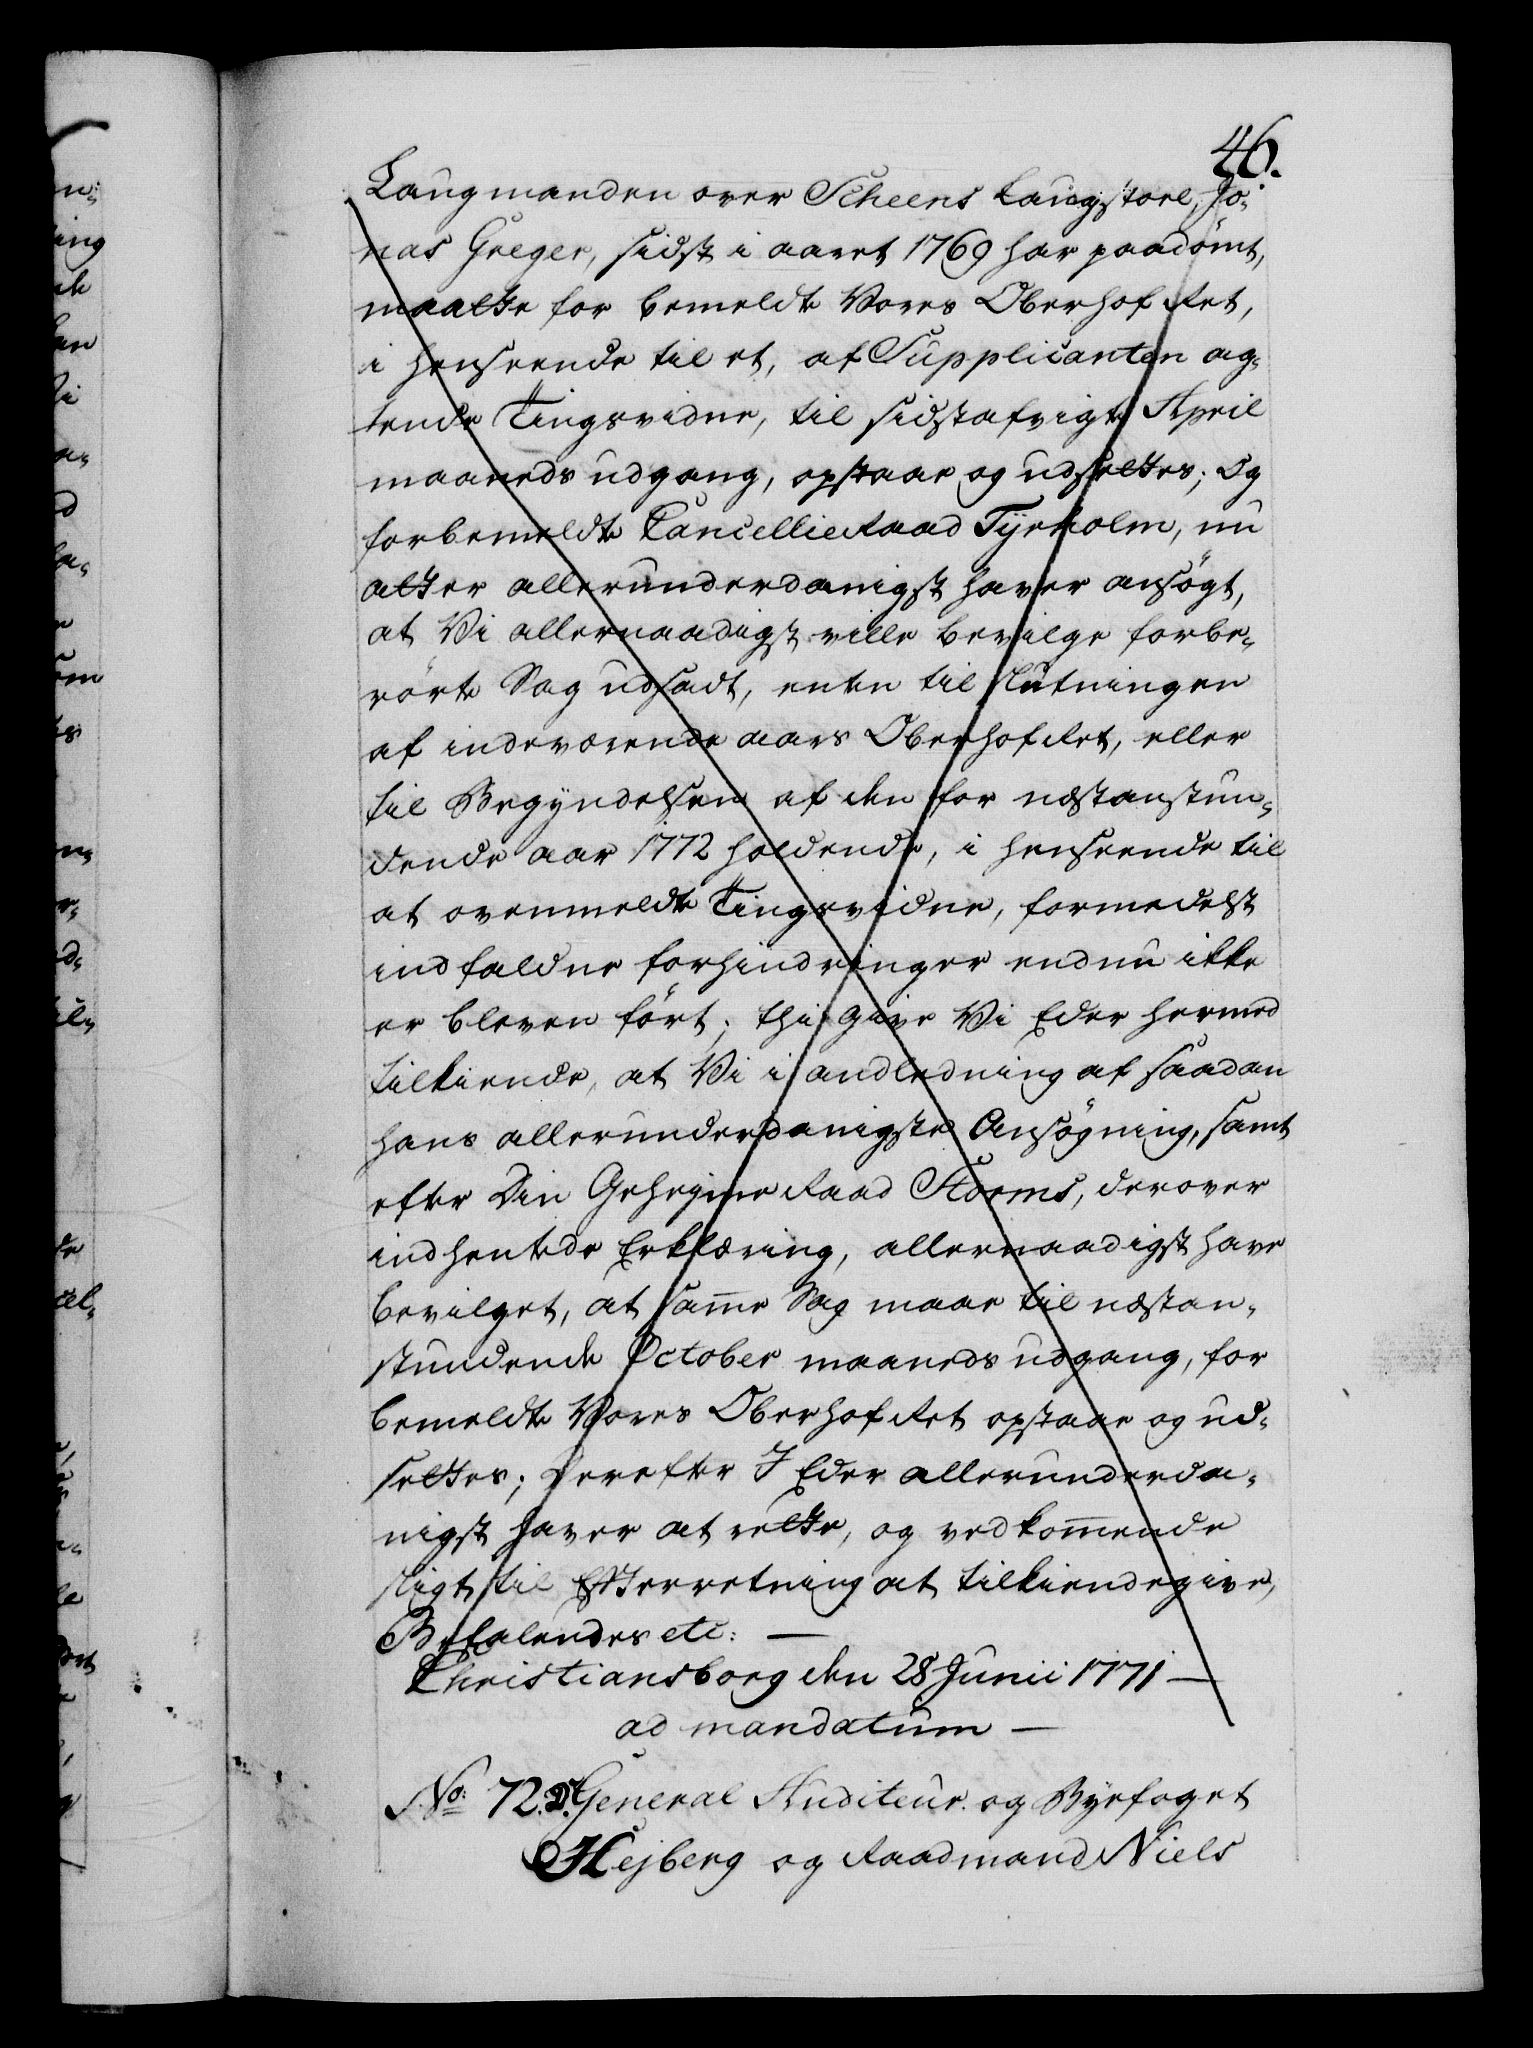 46.
Laugmanden over Scheens Laugstoel, Jo-
nas Greger, sidst i aaret 1769 har paadömt,
maatte for bemeldte Vores Oberhof Ret,
i henseende til et, af Supplicanten ag-
tende Tingsvidne, til sidstafvigte April
maaneds udgang, opstaae og udsettes; Og
forbemeldte Cancellie Raad Tyrholm, nu
atter allerunderdanigst haver ansögt,
at Vi allernaadigst ville bevilge forbe-
rörte Sag udsadt, enten til slutningen
af indeværende aars Oberhof Ret, eller
til Begyndelsen af den for næstanstun-
dende aar 1772 holdende, i henseende til
at ovenmeldte Tingsvidne, formedelst
indfaldne forhindringer endnu ikke
er bleven fört; thi give Vi Eder hermed
tilkiende, at Vi i andledning af saadan
hans allerunderdanigste Ansögning, samt
efter Din Geheime Raad Storms, derover
indhentede Erklæring, allernaadigst have
bevilget, at samme Sag maae til næstan-
stundende October maaneds udgang, for
bemeldte Vores Oberhof Ret opstaae og ud-
settes; Derefter I Eder allerunderda-
nigst haver at rette, og vedkommende
sligt til Efterretning at tilkiendegive,
Befalendes etc: —
Christiansborg den 28 Junii 1771 —
ad mandatum —
No: 72. General Auditeur og Byefoget
Hejberg og Raadmand Niels